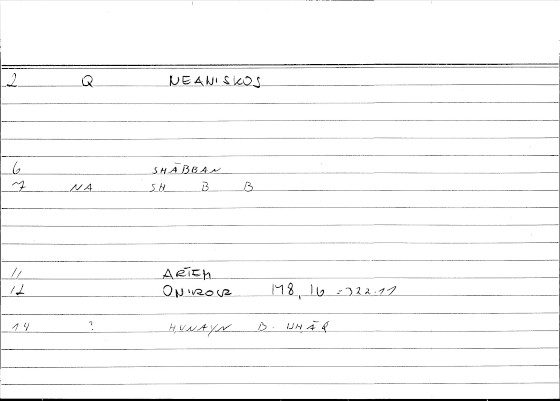 2 Q NEANISKOS
6 SHĀBBAN
7 NA SH B B
11 ARTEM
12 ONIROCR 178, 16 = 322.11
14 ? HUNAYN B. ISHĀQ